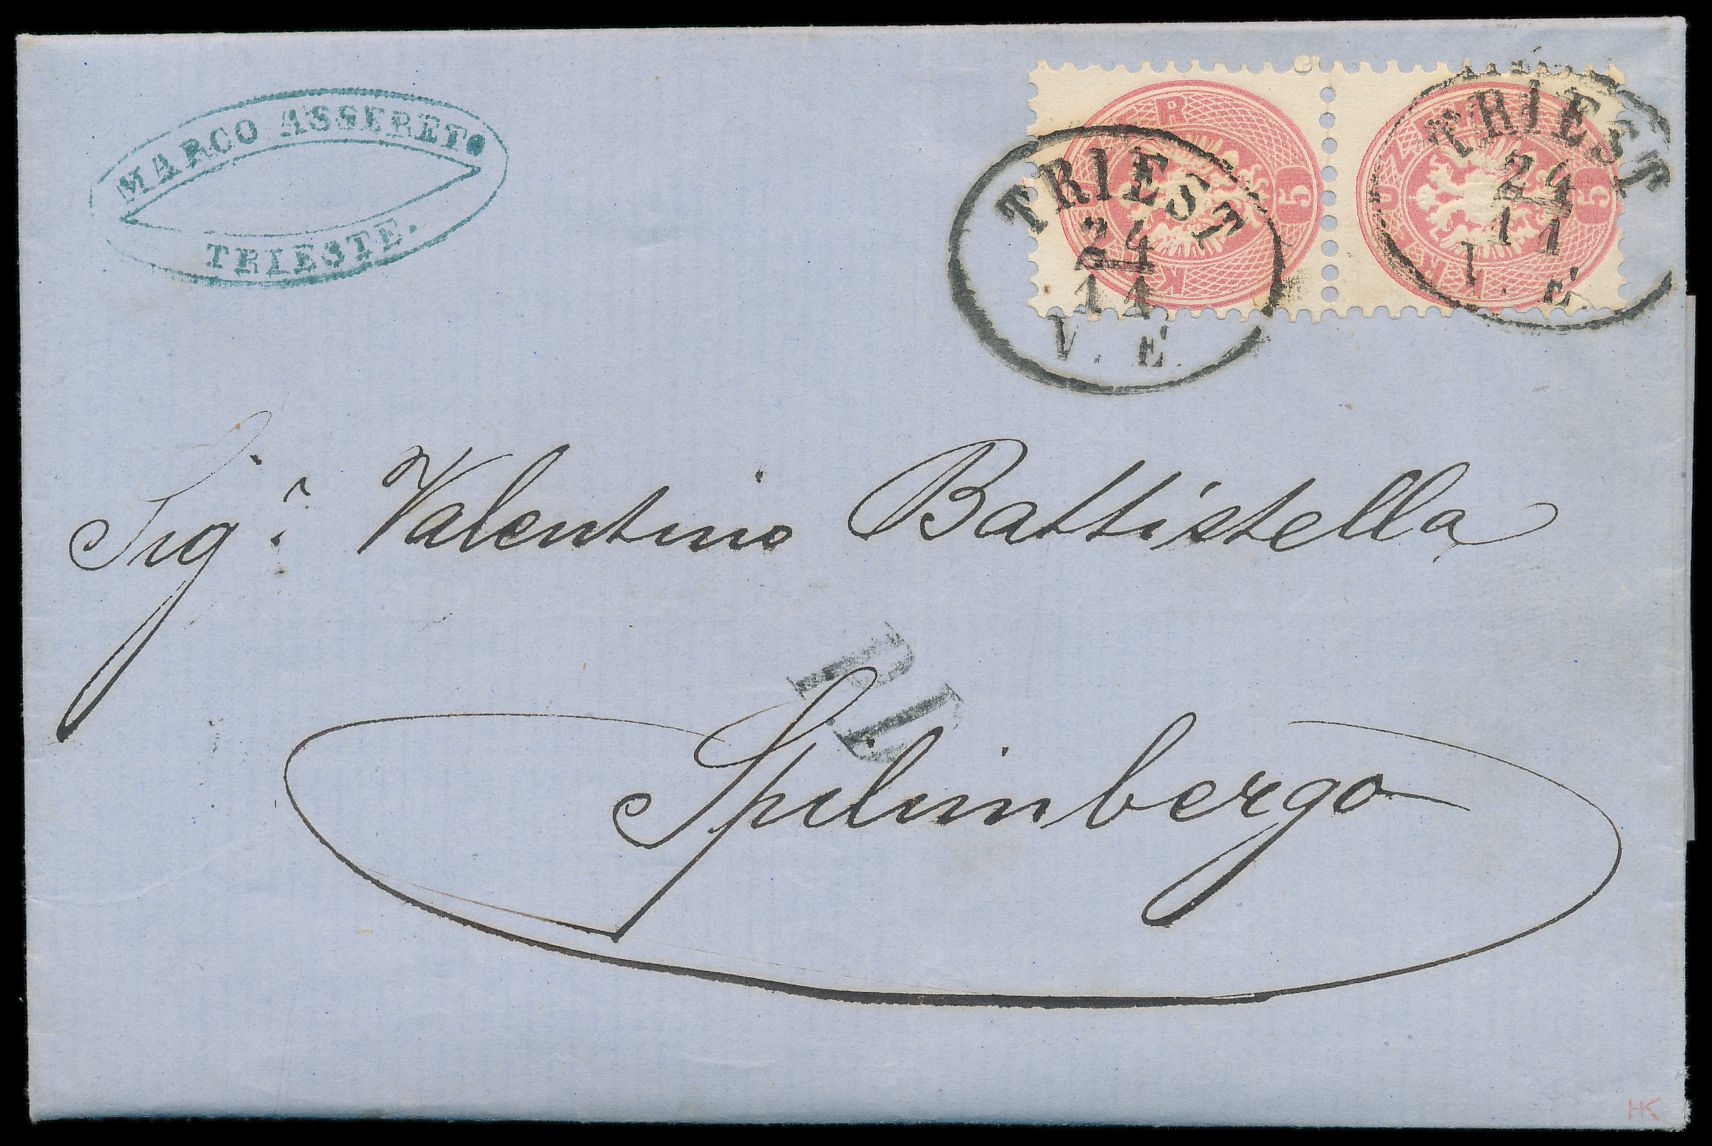 MARCO ASSERETO
TRIESTE.
KREUZER 5
KREUZER 5
TRIEST
24
11
V. E.
TRIEST
24
11.
V. E.
Sigr. Valentino Battistella
P.D.
Spilimbergo
HK